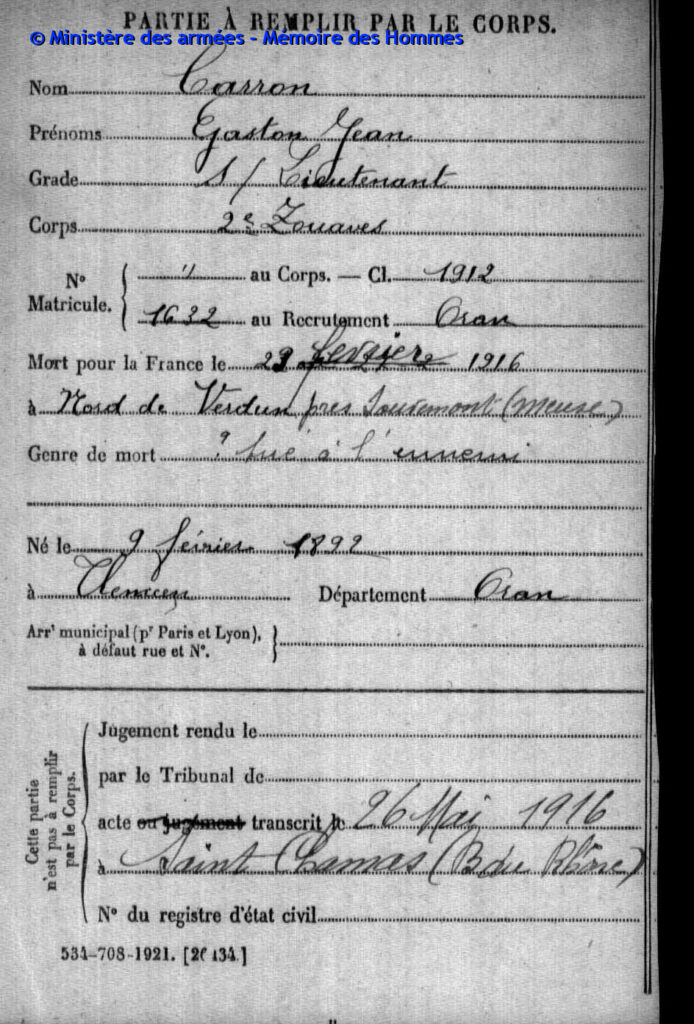 PARTIE À REMPLIR PAR LE CORPS.
© Ministère des armées - Mémoire des Hommes
Nom Carron
Prénoms Gaston Jean
Grade S/Lieutenant
Corps 2e Zouaves
N° Matricule. " au Corps. — Cl. 1912
1632 au Recrutement Oran
Mort pour la France le février 1916
à Nord de Verdun près Louvemont (Meuse)
Genre de mort tué à l'ennemi
Né le 9 février 1892
à Tlemcen Département Oran
Arrt municipal (pr Paris et Lyon),
à défaut rue et N°.
Cette partie n'est pas à remplir par le Corps.
Jugement rendu le
par le Tribunal de
acte ou jugement transcrit le 26 Mai 1916
à Saint Chamas (B du Rhône)
N° du registre d'état civil
534-708-1921. [26434.]